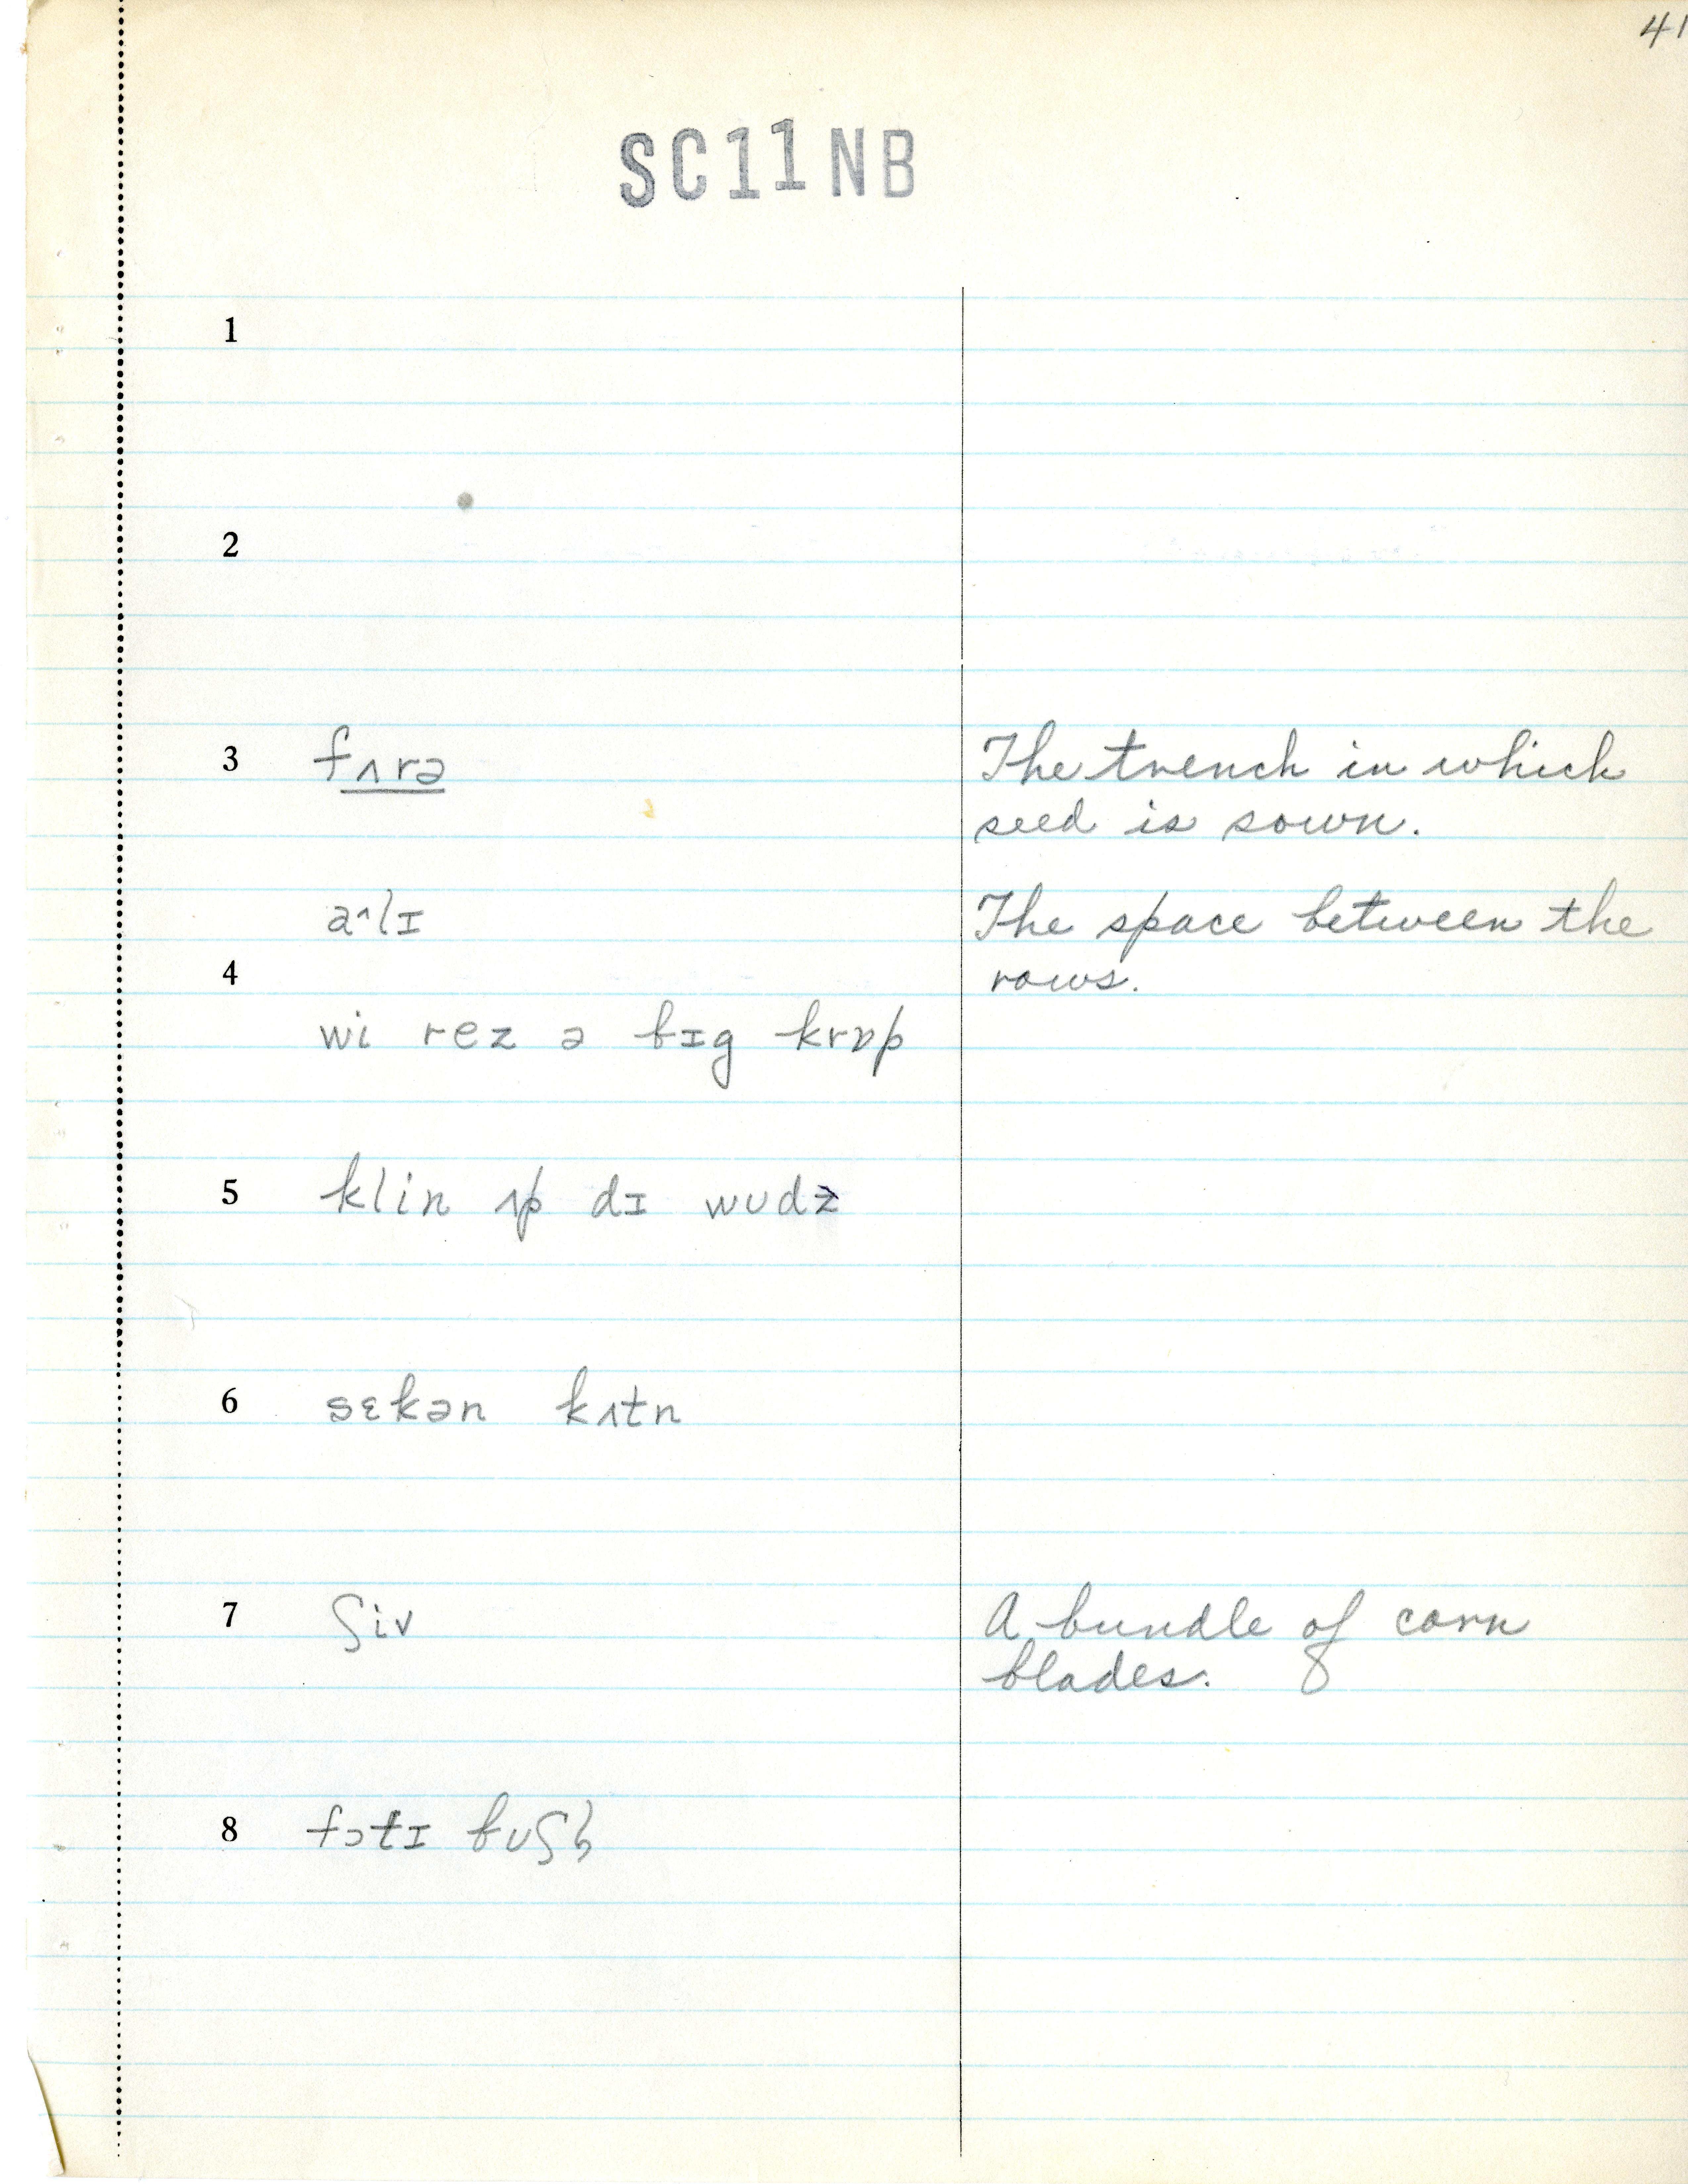 41
SC11NB
1
2
3 fʌrə The trench in which
seed is sown.
aˆlɪ The space between the
4 rows.
wi rez ə bɪg krɒp
5 klin ʌp dɪ wʊdz
6 sɛkən kʌtn
7 ʃiv A bundle of corn
blades.
8 fɔtɪ bʊʃḷ